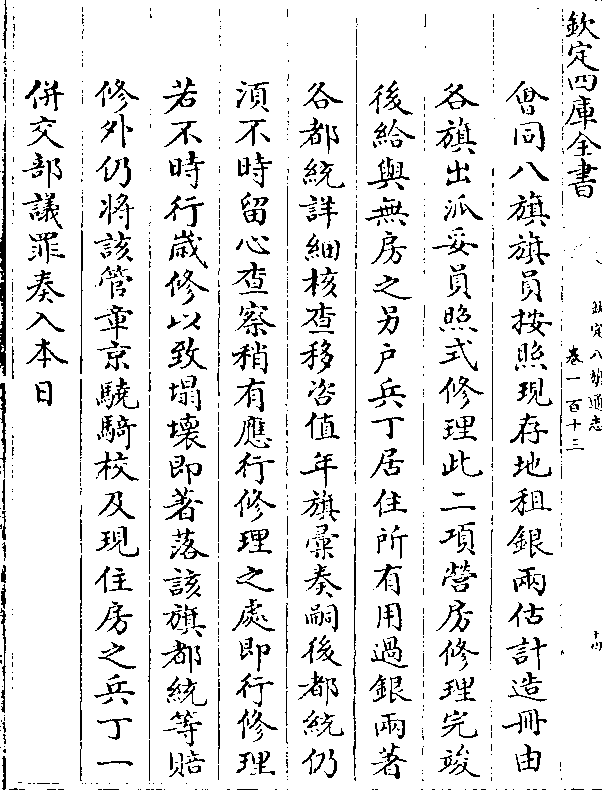 欽定四庫全書
欽定八旗通志
卷一百十三
十四
會同八旗旗員按照現存地租銀兩估計造冊由
各旗出派妥員照式修理此二項營房修理完竣
後給與無房之另户兵丁居住所有用過銀兩著
各都統詳細核查移咨值年旗彙奏嗣後都統仍
湏不時留心查察稍有應行修理之處即行修理
若不時行歲修以致塌壞即著落該旗都統等賠
修外仍將該管章京驍騎校及現住房之兵丁一
併交部議罪奏入本日